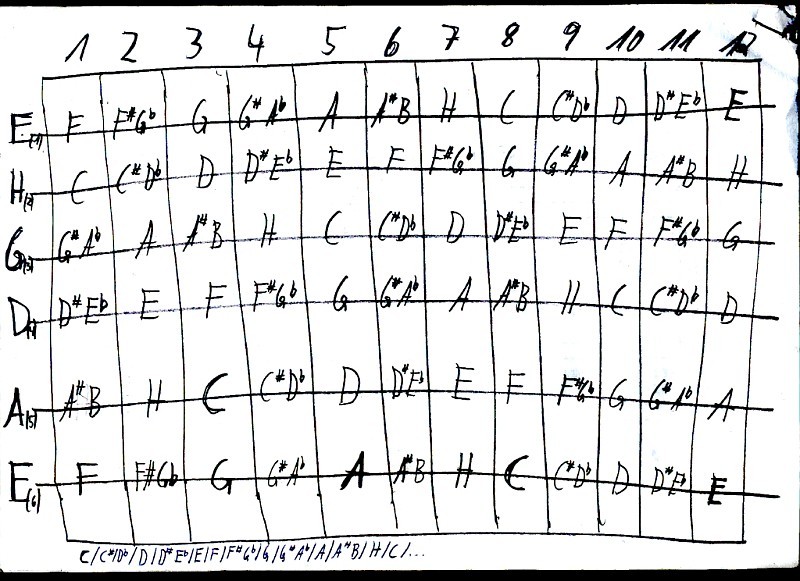 1 2 3 4 5 6 7 8 9 10 11 12
E(1) F F#Gb G G#Ab A A#B H C C#Db D D#Eb E
H(2) C C#Db D D#Eb E F F#Gb G G#Ab A A#B H
G(3) G#Ab A A#B H C C#Db D D#Eb E F F#Gb G
D(4) D#Eb E F F#Gb G G#Ab A A#B H C C#Db D
A(5) A#B H C C#Db D D#Eb E F F#Gb G G#Ab A
E(6) F F#Gb G G#Ab A A#B H C C#Db D D#Eb E
C/C#Db/D/D#Eb/E/F/F#Gb/G/G#Ab/A/A#B/H/C/...